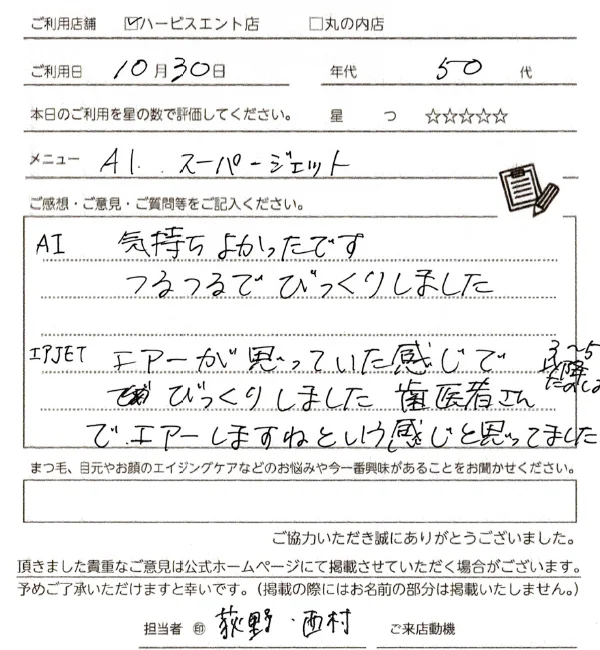 ご利用店舗 ☑ハービスエント店 □丸の内店
ご利用日 10月30日 年代 50代
本日のご利用を星の数で評価してください。 星 つ ☆☆☆☆☆
メニュー AI. スーパージェット
ご感想・ご意見・ご質問等をご記入ください。
AI 気持ちよかったです
つるつるで びっくりしました
エアJET エアーが思っていた感じで 3〜5
びっくりしました 歯医者さん
で、エアーしますねという感じと思ってました
まつ毛、目元やお顔のエイジングケアなどのお悩みや今一番興味があることをお聞かせください。
ご協力いただき誠にありがとうございました。
頂きました貴重なご意見は公式ホームページにて掲載させていただく場合がございます。
予めご了承いただけますと幸いです。（掲載の際にはお名前の部分は掲載いたしません。）
担当者 ㊞ 荻野・西村 ご来店動機